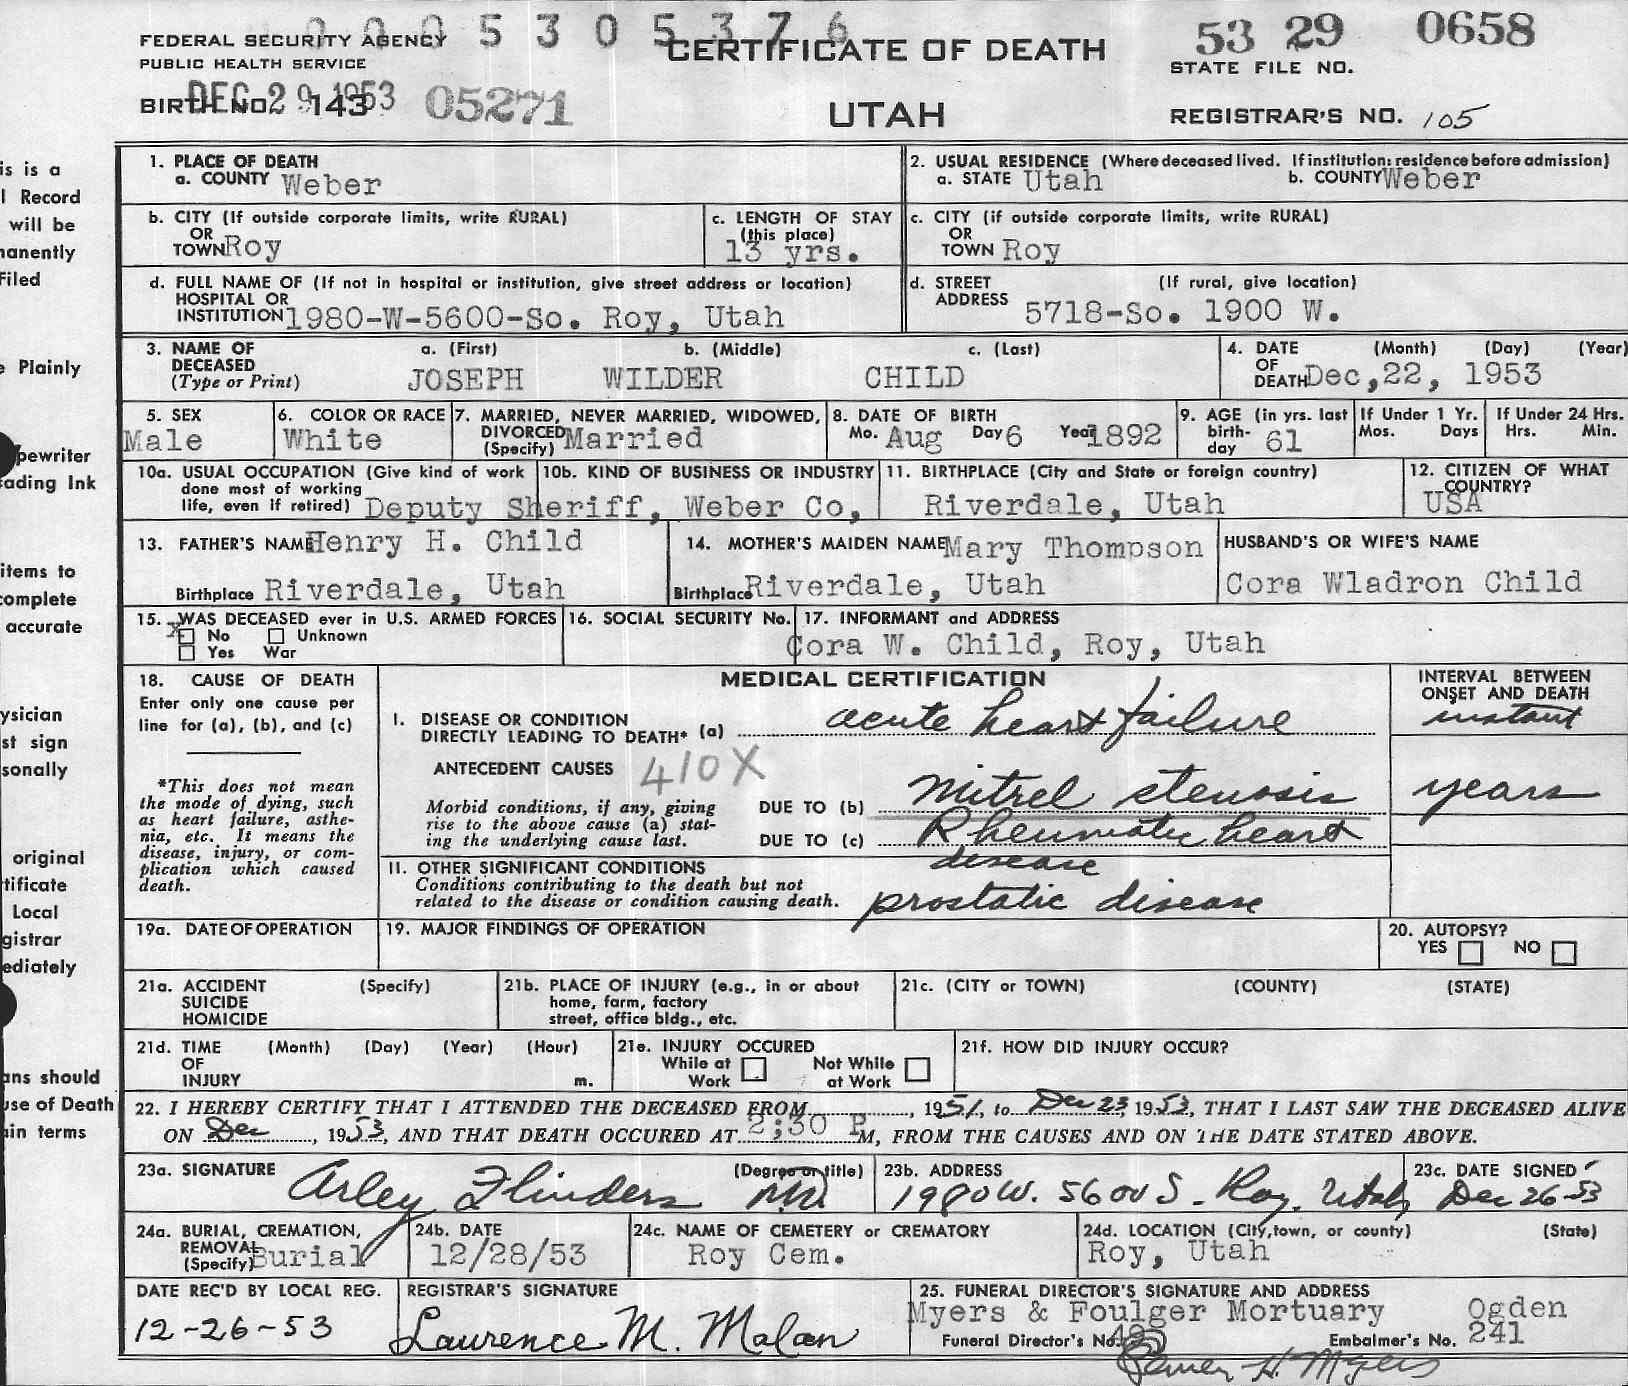 0 0 0 5 3 0 5 3 7 6
53 29 0658
FEDERAL SECURITY AGENCY
PUBLIC HEALTH SERVICE
CERTIFICATE OF DEATH
STATE FILE NO.
BIRTH NO. 143
DEC 29 1953
05271
UTAH
REGISTRAR'S NO. 105
is is a
l Record
will be
manently
Filed
e Plainly
pewriter
ading Ink
items to
complete
accurate
ysician
st sign
sonally
original
tificate
Local
gistrar
ediately
ans should
use of Death
ain terms
1. PLACE OF DEATH
a. COUNTY Weber
2. USUAL RESIDENCE (Where deceased lived. If institution: residence before admission)
a. STATE Utah b. COUNTY Weber
b. CITY (If outside corporate limits, write RURAL)
OR
TOWN Roy
c. LENGTH OF STAY
(this place)
13 yrs.
c. CITY (if outside corporate limits, write RURAL)
OR
TOWN Roy
d. FULL NAME OF (If not in hospital or institution, give street address or location)
HOSPITAL OR
INSTITUTION 1980-W-5600-So. Roy, Utah
d. STREET (If rural, give location)
ADDRESS 5718-So. 1900 W.
3. NAME OF a. (First) b. (Middle) c. (Last)
DECEASED
(Type or Print) JOSEPH WILDER CHILD
4. DATE (Month) (Day) (Year)
OF
DEATH Dec,22, 1953
5. SEX
Male
6. COLOR OR RACE
White
7. MARRIED, NEVER MARRIED, WIDOWED,
DIVORCED Married
(Specify)
8. DATE OF BIRTH
Mo. Aug Day 6 Year 1892
9. AGE (in yrs. last
birth-
day 61
If Under 1 Yr.
Mos. Days
If Under 24 Hrs.
Hrs. Min.
10a. USUAL OCCUPATION (Give kind of work
done most of working
life, even if retired) Deputy Sheriff, Weber Co,
10b. KIND OF BUSINESS OR INDUSTRY
11. BIRTHPLACE (City and State or foreign country)
Riverdale, Utah
12. CITIZEN OF WHAT
COUNTRY?
USA
13. FATHER'S NAME Henry H. Child
Birthplace Riverdale, Utah
14. MOTHER'S MAIDEN NAME Mary Thompson
Birthplace Riverdale, Utah
HUSBAND'S OR WIFE'S NAME
Cora Wladron Child
15. WAS DECEASED ever in U.S. ARMED FORCES
x No Unknown
Yes War
16. SOCIAL SECURITY No.
17. INFORMANT and ADDRESS
Cora W. Child, Roy, Utah
18. CAUSE OF DEATH
Enter only one cause per
line for (a), (b), and (c)
*This does not mean
the mode of dying, such
as heart failure, asthe-
nia, etc. It means the
disease, injury, or com-
plication which caused
death.
MEDICAL CERTIFICATION
I. DISEASE OR CONDITION
DIRECTLY LEADING TO DEATH* (a) acute heart failure
ANTECEDENT CAUSES 410X
Morbid conditions, if any, giving
rise to the above cause (a) stat-
ing the underlying cause last.
DUE TO (b) Mitrel stenosis
DUE TO (c) Rheumatic heart
disease
II. OTHER SIGNIFICANT CONDITIONS
Conditions contributing to the death but not
related to the disease or condition causing death. prostatic disease
INTERVAL BETWEEN
ONSET AND DEATH
instant
years
19a. DATE OF OPERATION
19. MAJOR FINDINGS OF OPERATION
20. AUTOPSY?
YES NO
21a. ACCIDENT (Specify)
SUICIDE
HOMICIDE
21b. PLACE OF INJURY (e.g., in or about
home, farm, factory
street, office bldg., etc.
21c. (CITY or TOWN) (COUNTY) (STATE)
21d. TIME (Month) (Day) (Year) (Hour)
OF
INJURY m.
21e. INJURY OCCURED
While at Not While
Work at Work
21f. HOW DID INJURY OCCUR?
22. I HEREBY CERTIFY THAT I ATTENDED THE DECEASED FROM , 1951, to Dec 23, 1953, THAT I LAST SAW THE DECEASED ALIVE
ON Dec , 1953, AND THAT DEATH OCCURED AT 2;30 P M, FROM THE CAUSES AND ON THE DATE STATED ABOVE.
23a. SIGNATURE (Degree or title)
Arley Flinders M.D.
23b. ADDRESS
1980 W. 5600 S. Roy, Utah
23c. DATE SIGNED
Dec 26-53
24a. BURIAL, CREMATION,
REMOVAL
(Specify) Burial
24b. DATE
12/28/53
24c. NAME OF CEMETERY or CREMATORY
Roy Cem.
24d. LOCATION (City, town, or county) (State)
Roy, Utah
DATE REC'D BY LOCAL REG.
12-26-53
REGISTRAR'S SIGNATURE
Laurence M. Malan
25. FUNERAL DIRECTOR'S SIGNATURE AND ADDRESS
Myers & Foulger Mortuary Ogden
Funeral Director's No. Embalmer's No. 241
H. Myers